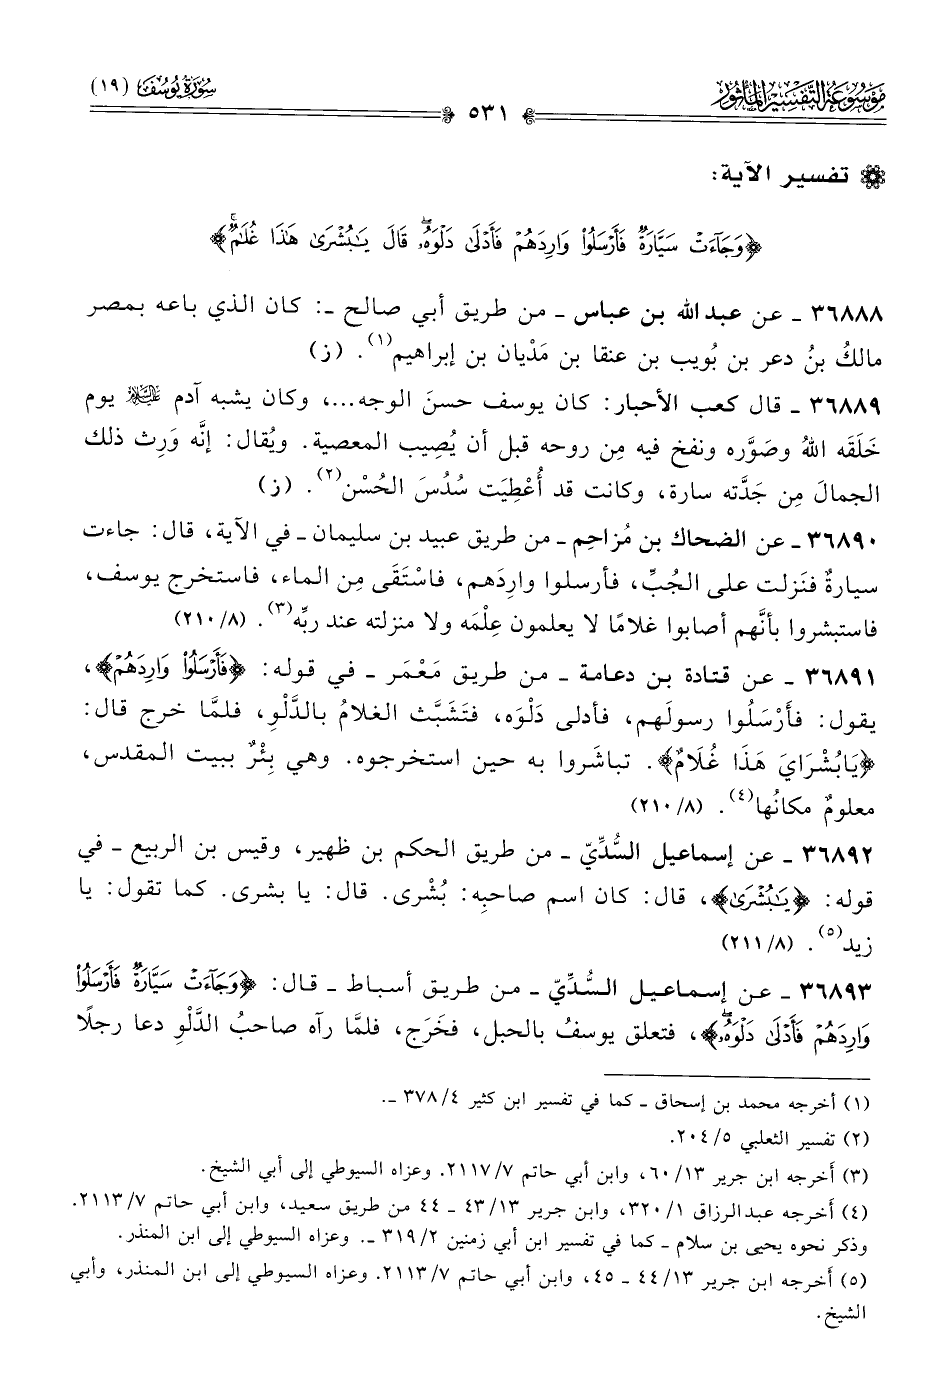 مَوْسُوعَة التَّفْسِير المَأْثُور
سُورَة يُوسُف (١٩)
٥٣١
تفسير الآية:
﴿وَجَآءَتۡ سَيَّارَةٞ فَأَرۡسَلُواْ وَارِدَهُمۡ فَأَدۡلَىٰ دَلۡوَهُۥۖ قَالَ يَٰبُشۡرَىٰ هَٰذَا غُلَٰمٞۚ﴾
٣٦٨٨٨ ـ عن عبد الله بن عباس ـ من طريق أبي صالح ـ: كان الذي باعه بمصر
مالكُ بنُ دعر بن بُويب بن عنقا بن مَدْيان بن إبراهيم(١). (ز)
٣٦٨٨٩ ـ قال كعب الأحبار: كان يوسف حسنَ الوجه...، وكان يشبه آدم عليه السلام يوم
خَلَقه اللهُ وصَوَّره ونفخ فيه مِن روحه قبل أن يُصِيب المعصية. ويُقال: إنَّه وَرِث ذلك
الجمالَ مِن جَدَّته سارة، وكانت قد أُعْطِيَت سُدُسَ الحُسْن(٢). (ز)
٣٦٨٩٠ ـ عن الضحاك بن مُزاحِم ـ من طريق عبيد بن سليمان ـ في الآية، قال: جاءت
سيارةٌ فنَزلت على الجُبِّ، فأرسلوا وارِدَهم، فاسْتَقَى مِن الماء، فاستخرج يوسف،
فاستبشروا بأنَّهم أصابوا غلامًا لا يعلمون عِلْمَه ولا منزلته عند ربِّه(٣). (٢١٠/٨)
٣٦٨٩١ ـ عن قتادة بن دعامة ـ من طريق مَعْمَر ـ في قوله: ﴿فَأَرۡسَلُواْ وَارِدَهُمۡ﴾،
يقول: فأَرْسَلُوا رسولَهم، فأدلى دَلْوَه، فتَشَبَّث الغلامُ بالدَّلْوِ، فلمَّا خرج قال:
﴿يَابُشْرَايَ هَذَا غُلَامٌ﴾. تباشَروا به حين استخرجوه. وهي بِئْرٌ ببيت المقدس،
معلومٌ مكانُها(٤). (٢١٠/٨)
٣٦٨٩٢ ـ عن إسماعيل السُّدِّيّ ـ من طريق الحكم بن ظهير، وقيس بن الربيع ـ في
قوله: ﴿يَٰبُشۡرَىٰ﴾، قال: كان اسم صاحبِه: بُشْرى. قال: يا بشرى. كما تقول: يا
زيد(٥). (٢١١/٨)
٣٦٨٩٣ ـ عن إسماعيل السُّدِّيّ ـ من طريق أسباط ـ قال: ﴿وَجَآءَتۡ سَيَّارَةٞ فَأَرۡسَلُواْ
وَارِدَهُمۡ فَأَدۡلَىٰ دَلۡوَهُۥۖ﴾، فتعلق يوسفُ بالحبل، فخَرَج، فلمَّا رآه صاحبُ الدَّلْوِ دعا رجلًا
(١) أخرجه محمد بن إسحاق ـ كما في تفسير ابن كثير ٣٧٨/٤ ـ.
(٢) تفسير الثعلبي ٢٠٤/٥.
(٣) أخرجه ابن جرير ٦٠/١٣، وابن أبي حاتم ٢١١٧/٧. وعزاه السيوطي إلى أبي الشيخ.
(٤) أخرجه عبدالرزاق ٣٢٠/١، وابن جرير ٤٣/١٣ ـ ٤٤ من طريق سعيد، وابن أبي حاتم ٢١١٣/٧.
وذكر نحوه يحيى بن سلام ـ كما في تفسير ابن أبي زمنين ٣١٩/٢ ـ. وعزاه السيوطي إلى ابن المنذر.
(٥) أخرجه ابن جرير ٤٤/١٣ ـ ٤٥، وابن أبي حاتم ٢١١٣/٧. وعزاه السيوطي إلى ابن المنذر، وأبي
الشيخ.